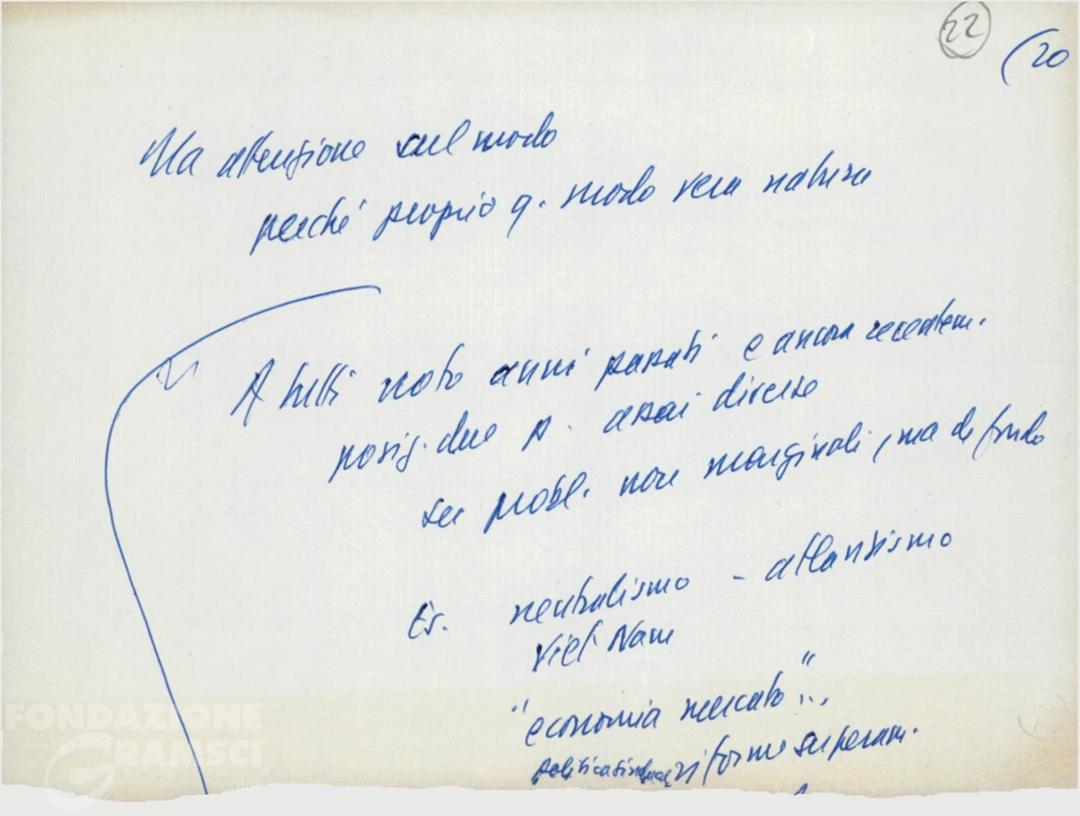 22
(20
Ma attenzione sul modo
perché proprio q. modo vera natura
A tutti noto anni passati e ancora recentem.
posiz. due p. assai diverse
su probl. non marginali, ma di fondo
Es. neutralismo - atlantismo
Viet Nam
"economia mercato"...
riforme superam.
FONDAZIONE
GRAMSCI